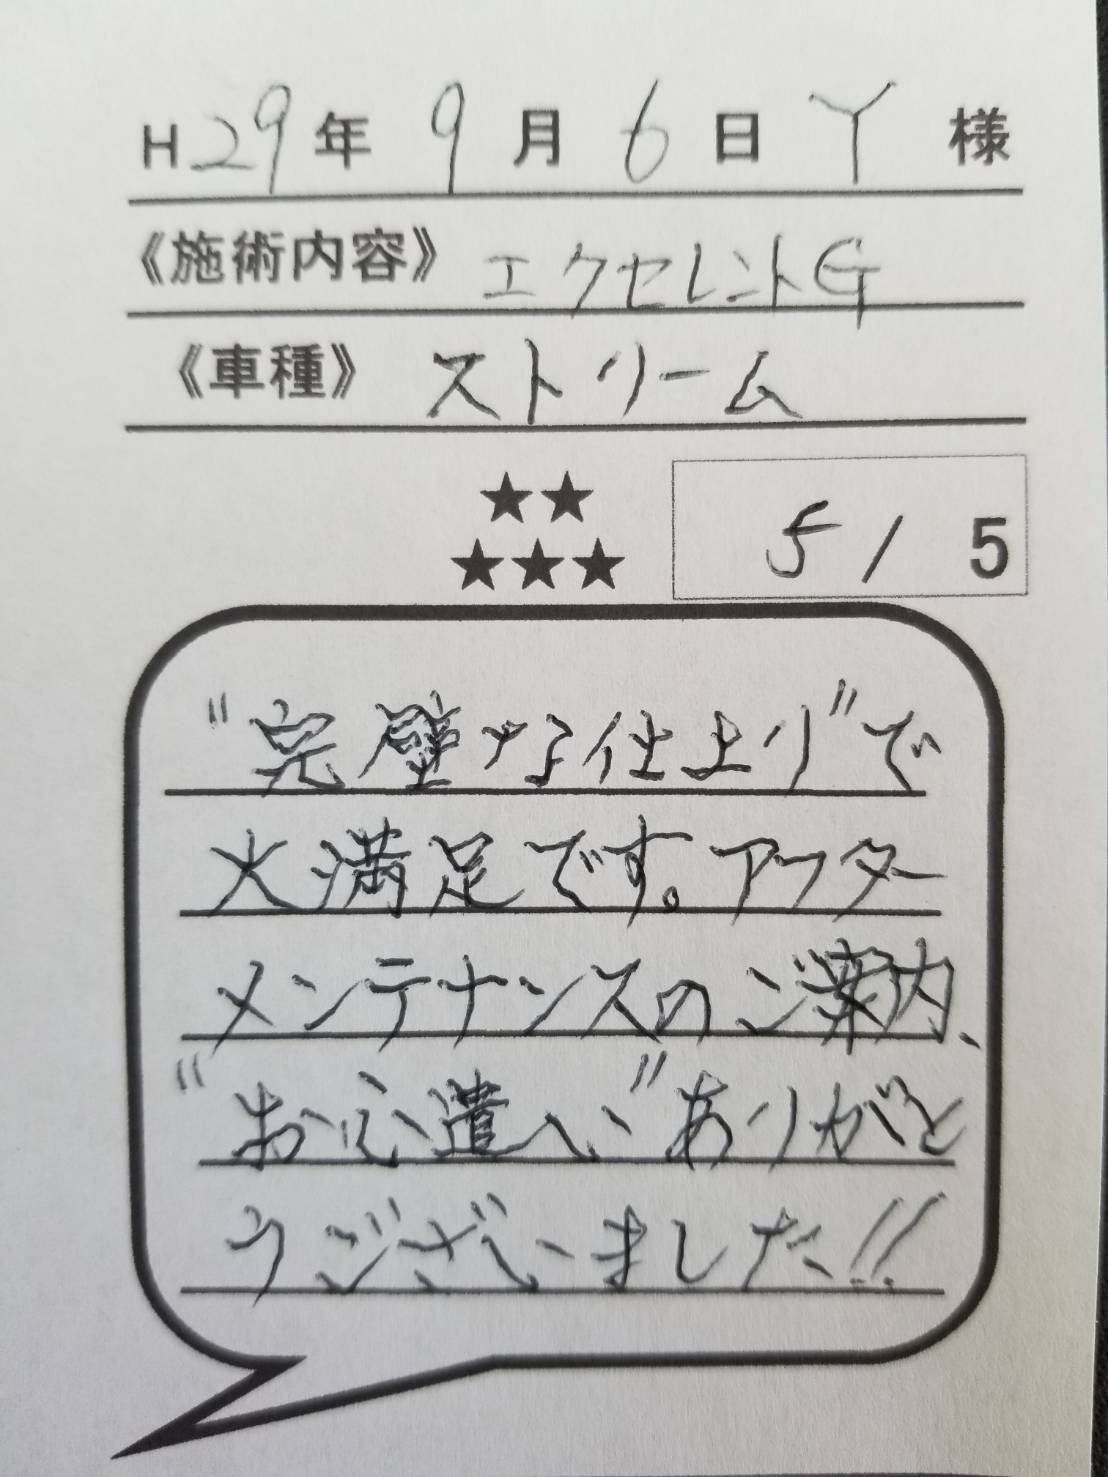 H29年 9月 6日 Y 様
《施術内容》 エクセレントG
《車種》 ストリーム
★★
★★★ 5/5
"完璧な仕上り"で
大満足です。アフター
メンテナンスのご案内、
"お心遣い"ありがと
うございました!!